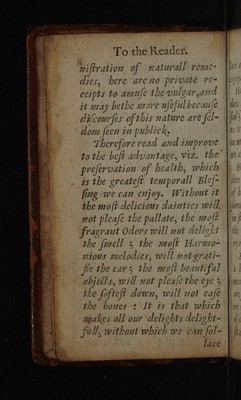 To the Reader.
niſtration of naturall reme-
dies, here are no private re-
ceipts to amuſe the vulgar, and
it may be the more uſefull becauſe
diſcourſes of this nature are ſel-
dom ſeen in publick.
Therefore read and improve
to the beſt advantage, viz. the
preſervation of health, which
is the greateſt temporall Bleſ-
ſing we can enjoy. Without it
the moſt delicious dainties will
not pleaſe the pallate, the moſt
fragrant Odors will not delight
the ſmell ; the moſt Harmo-
nious melodies, will not grati-
fie the ear ; the moſt beautifull
objects, will not pleaſe the eye ;
the ſofteſt down, will not eaſe
the bones : It is that which
makes all our delights delight-
full, without which we can ſol-
lace